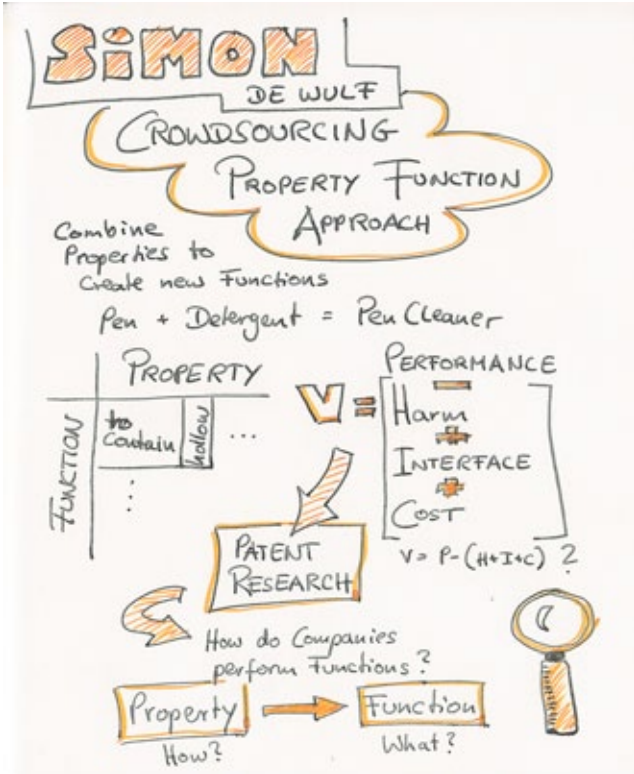 SiMON
DE WULF
CROWDSOURCING
PROPERTY FUNCTION
APPROACH
Combine
Properties to
Create new Functions
Pen + Detergent = Pen Cleaner
PROPERTY
FUNCTION
to
Contain
hollow
...
...
V =
PERFORMANCE
-
Harm
+
INTERFACE
+
COST
V = P-(H+I+C) ?
PATENT
RESEARCH
How do Companies
perform Functions?
Property
Function
How?
What?